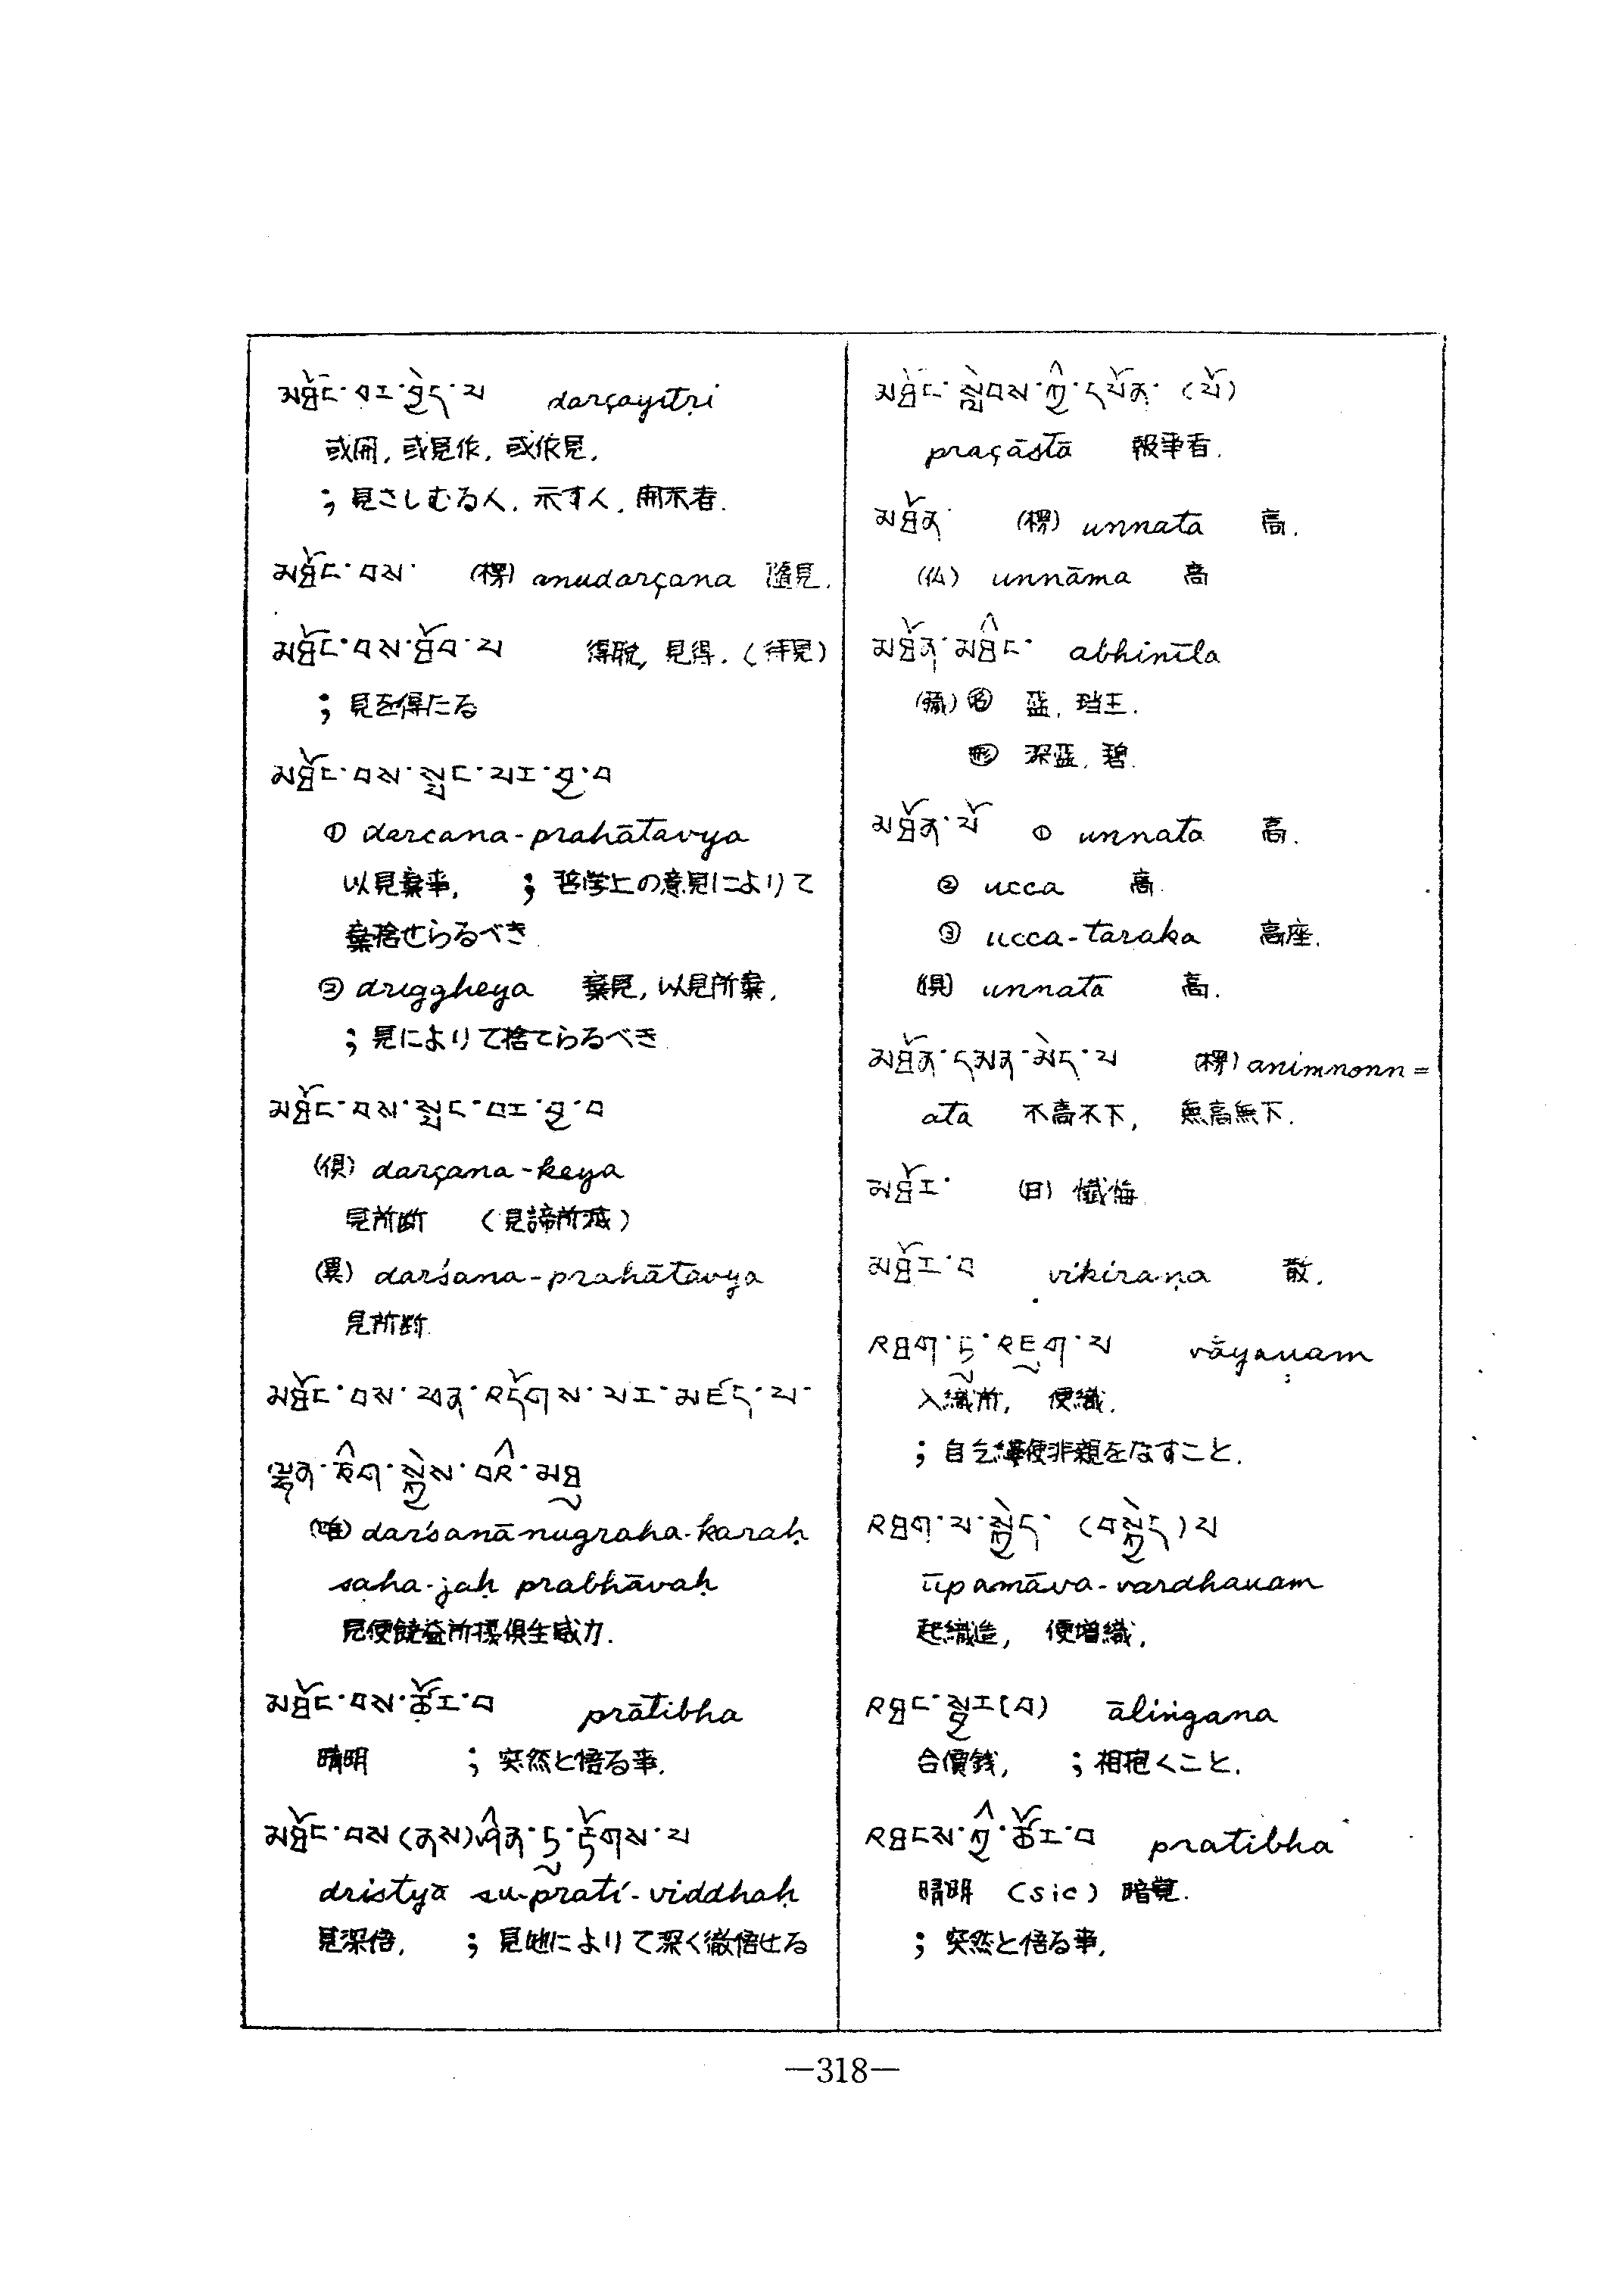 མཐོང་བར་བྱེད་པ darçayitṛi
或開, 或見作, 或依見.
; 見さしむる人. 示す人. 開示者.
མཐོང་བས་ (楞) anudarçana 隨見.
མཐོང་བས་ཐོབ་པ 得脱, 見得. (待見)
; 見を得たる
མཐོང་བས་སྤང་པར་བྱ་བ
① darcana-prahātavya
以見棄事. ; 哲学上の意見によりて
棄捨せらるべき
② driggheya 棄見, 以見所棄.
; 見によりて捨てらるべき
མཐོང་བས་སྤང་བར་བྱ་བ
(倶) darçana-keya
見所断 (見諦所滅)
(異) darśana-prahātavya
見所断.
མཐོང་བས་ཕན་འདོགས་པར་མཛད་པ་
ལྷན་ཅིག་སྐྱེས་བའི་མཐུ
darśanānugraha-karaḥ
saha-jaḥ prabhāvaḥ
見便饒益所援倶生威力.
མཐོང་བས་ཚོར་བ prātibha
晴明 ; 突然と悟る事.
མཐོང་བས (ནས) ཤིན་ཏུ་རྟོགས་པ
dristyā su-prati-viddhaḥ
見深悟. ; 見地によりて深く徹悟せる
མཐོང་སྡེབས་ཀྱི་དཔོན་ (པོ)
praçāstā 報事者.
མཐོན་ (楞) unnata 高.
(仏) unnāma 高
མཐོན་མཐིང་ abhinīla
㊔ 藍.
㊒ 深藍. 碧.
མཐོན་པོ ① unnata 高.
② ucca 高.
③ ucca-taraka 高座.
(倶) unnata 高.
མཐོན་དམན་མེད་པ (楞) animnonn=
ata 不高不下, 無高無下.
མཐོར་ (日) 懺悔.
མཐོར་བ vikiraṇa 散.
འཐག་ཏུ་འཇུག་པ vāyaṇam
入織所, 便織.
འཐག་པ་སྐྱེད་ (བསྐྱེད) པ
ūpamāva-vardhanam
起織造, 便増織.
འཐང་སྦྱར (བ) āliṅgana
合價銭, ; 相抱くこと.
འཐངས་ཀྱི་ཚོར་བ pratibha
晴明 (sic) 暗覚.
; 突然と悟る事.
—318—